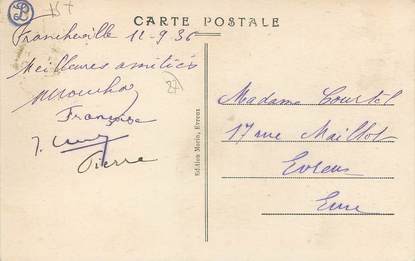 CARTE POSTALE
Francheville 12-9-36
Meilleures amitiés
Françoise
Pierre
Edition Morin, Evreux
Madame Courtel
17 rue Maillot
Evreux
Eure